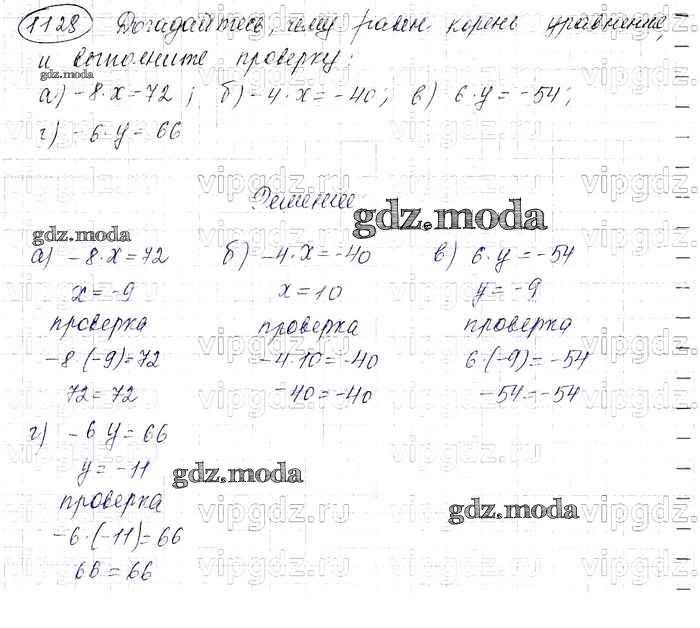 1128 Догадайтесь, чему равен корень уравнение,
и выполните проверку:
gdz.moda
а) -8·x=72; б) -4·x=-40; в) 6·y=-54;
г) -6·y=66
vipgdz.ru vipgdz.ru vipgdz.ru
Решение
gdz.moda
gdz.moda
а) -8·x=72 б) -4·x=-40 в) 6·y=-54
x=-9 x=10 y=-9
проверка проверка проверка
-8·(-9)=72 -4·10=-40 6·(-9)=-54
72=72 -40=-40 -54=-54
г) -6y=66
y=-11
gdz.moda
проверка
gdz.moda
-6·(-11)=66
66=66
vipgdz.ru vipgdz.ru vipgdz.ru